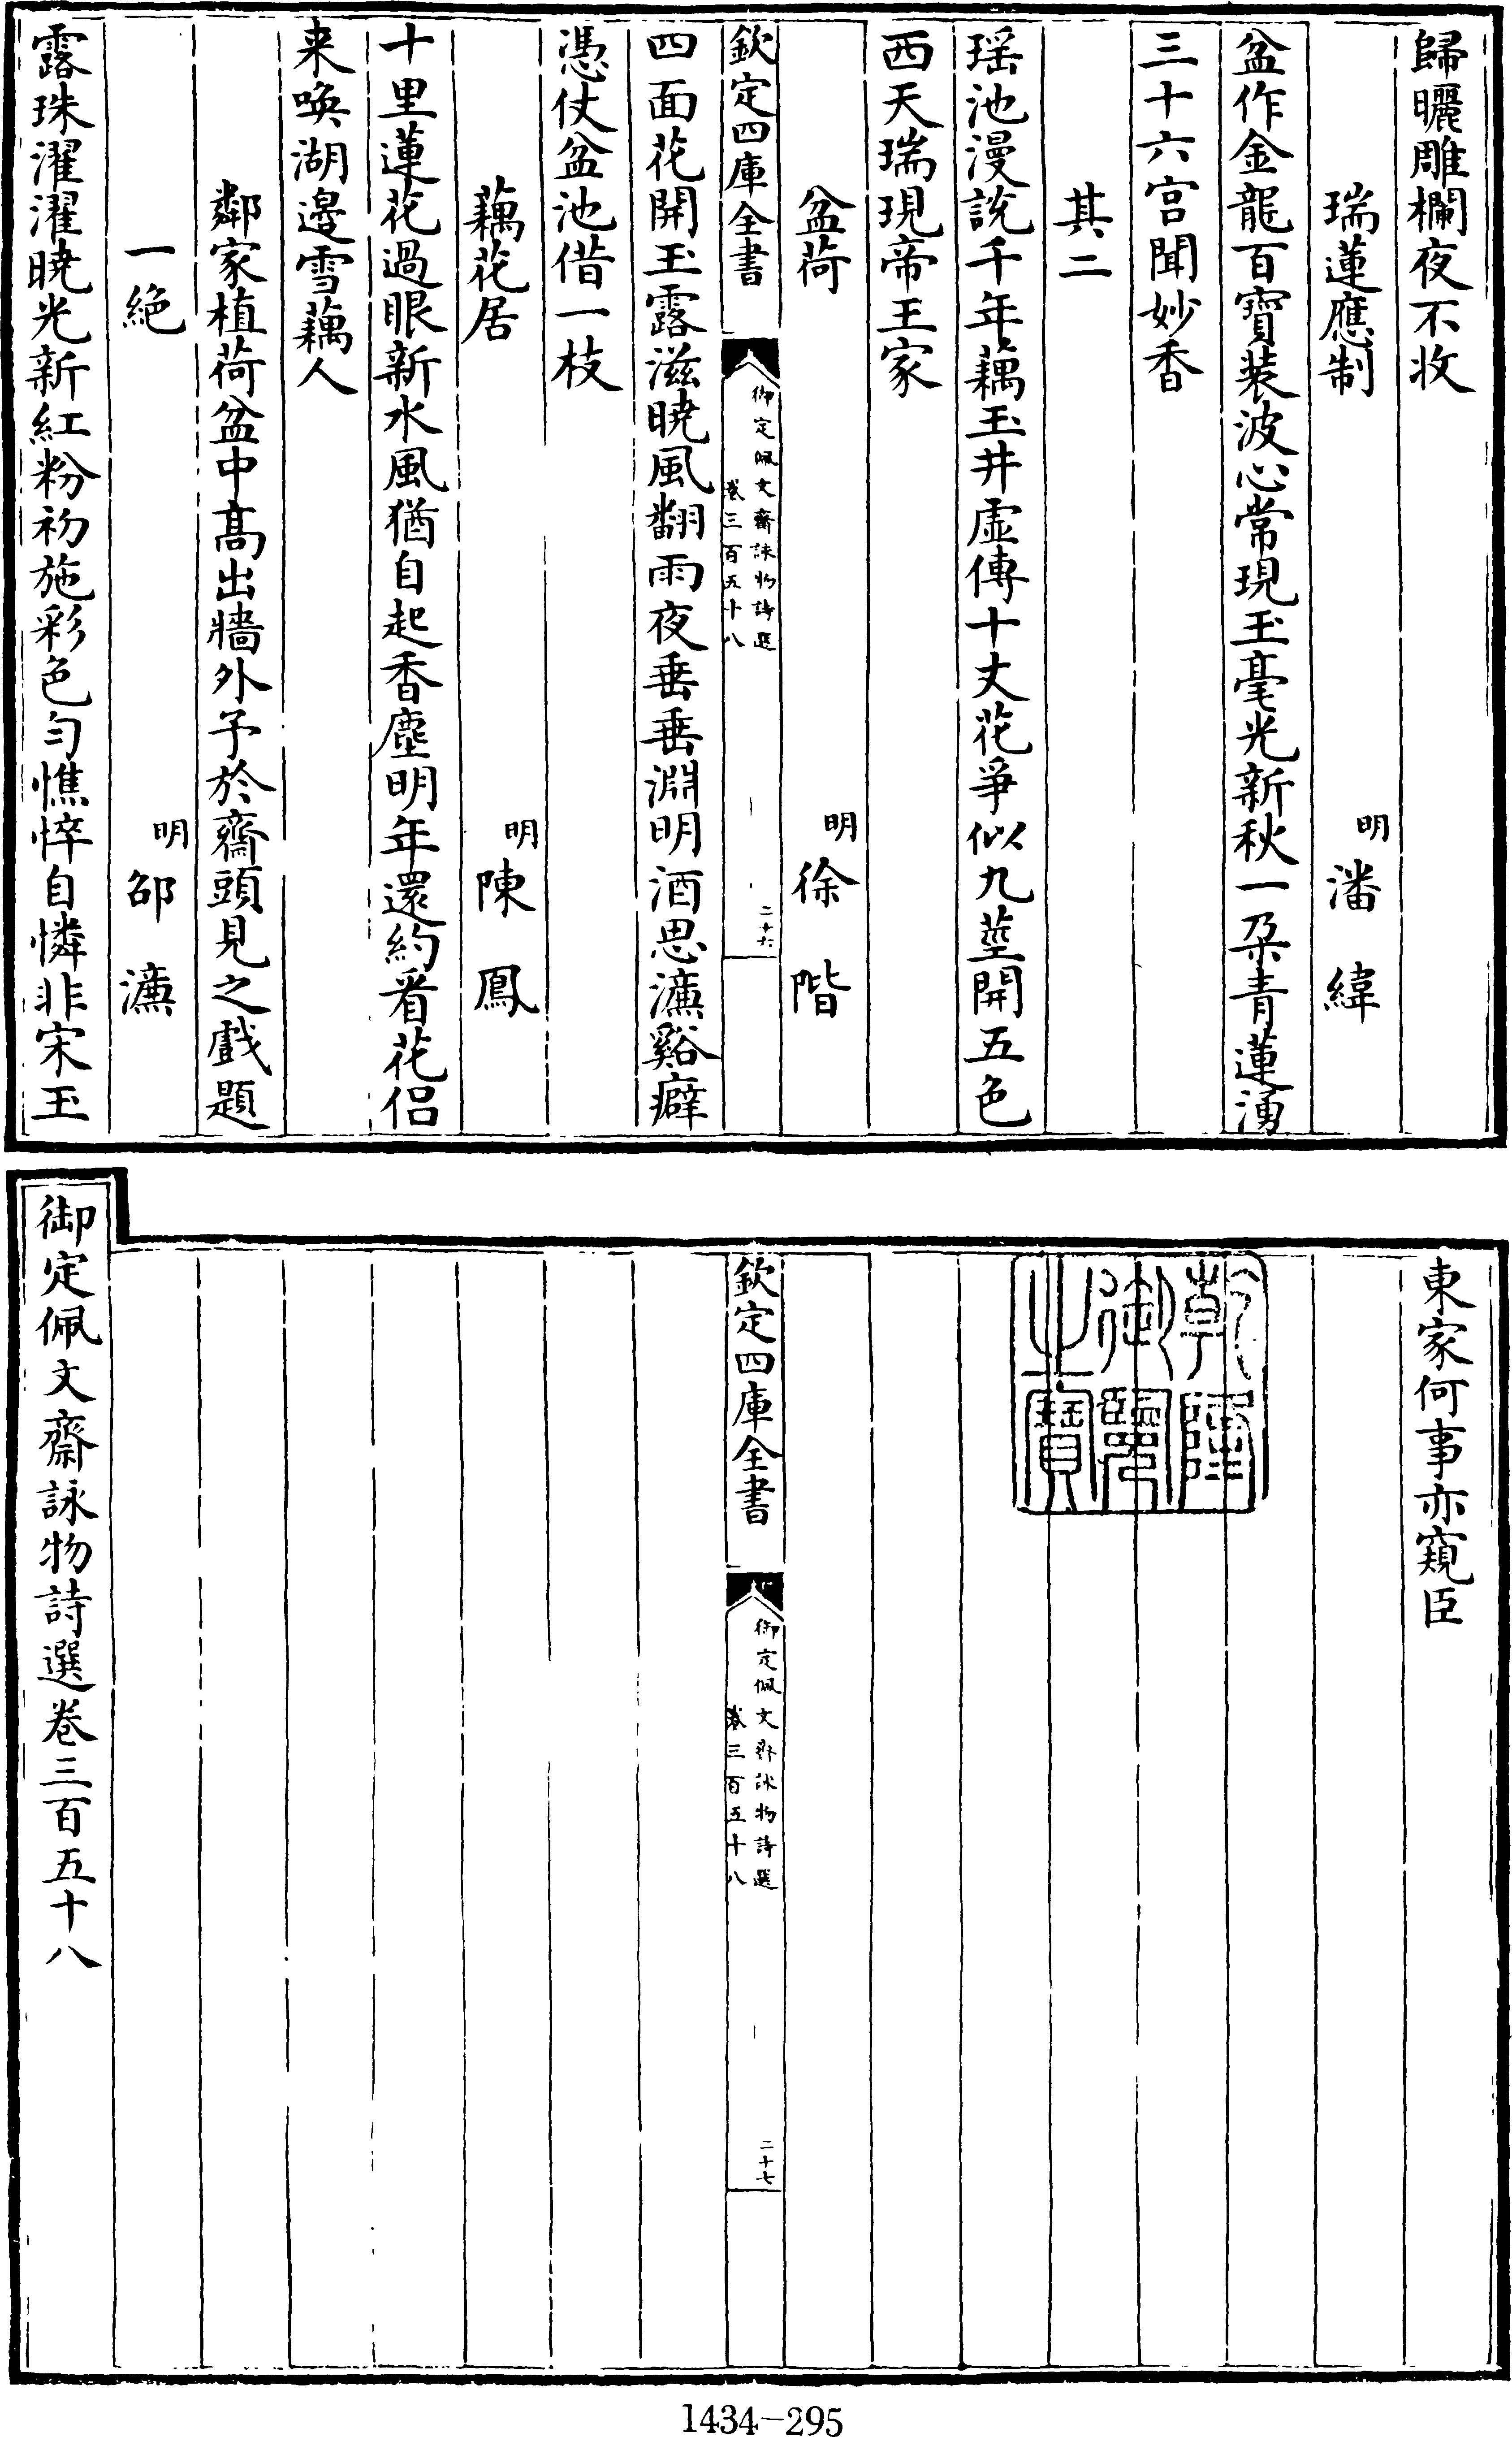 歸曬雕欄夜不收
瑞蓮應制
明潘緯
盆作金龍百寶装波心常現玉毫光新秋一朶青蓮湧
三十六宫聞妙香
其二
瑶池漫說千年藕玉井虛傳十丈花爭似九莖開五色
西天瑞現帝王家
盆荷
明徐階
欽定四庫全書
御定佩文齋詠物詩選
卷三百五十八
二十六
四面花開玉露滋曉風翻雨夜垂垂淵明酒思濂谿癖
憑仗盆池借一枝
藕花居
明陳鳳
十里蓮花過眼新水風猶自起香塵明年還約看花侣
来喚湖邊雪藕人
鄰家植荷盆中髙出牆外予於齋頭見之戲題
一絶
明邵濂
露珠濯濯曉光新紅粉初施彩色勻憔悴自憐非宋玉
東家何事亦窺臣
乾隆御覽之寶
欽定四庫全書
御定佩文齋詠物詩選
卷三百五十八
二十七
御定佩文齋詠物詩選卷三百五十八
1434-295